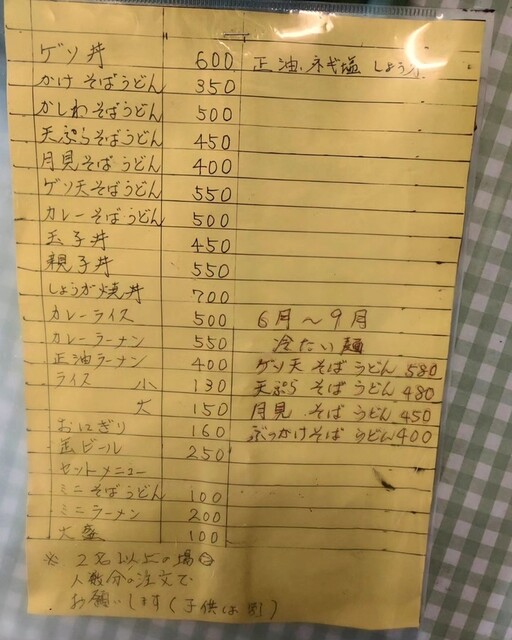 ゲソ丼 600 正油、ネギ塩 しょうが
かけそばうどん 350
かしわそばうどん 500
天ぷらそばうどん 450
月見そばうどん 400
ゲソ天そばうどん 550
カレーそばうどん 500
玉子丼 450
親子丼 550
しょうが焼丼 700
カレーライス 500 6月〜9月
カレーラーメン 550 冷たい麺
正油ラーメン 400 ゲソ天 そば うどん 580
ライス 小 130 天ぷら そば うどん 480
大 150 月見 そば うどん 450
おにぎり 160 ぶっかけそば うどん 400
缶ビール 250
セットメニュー
ミニそばうどん 100
ミニラーメン 200
大盛 100
※ 2名以上の場合
人数分の注文で
お願いします(子供は別)